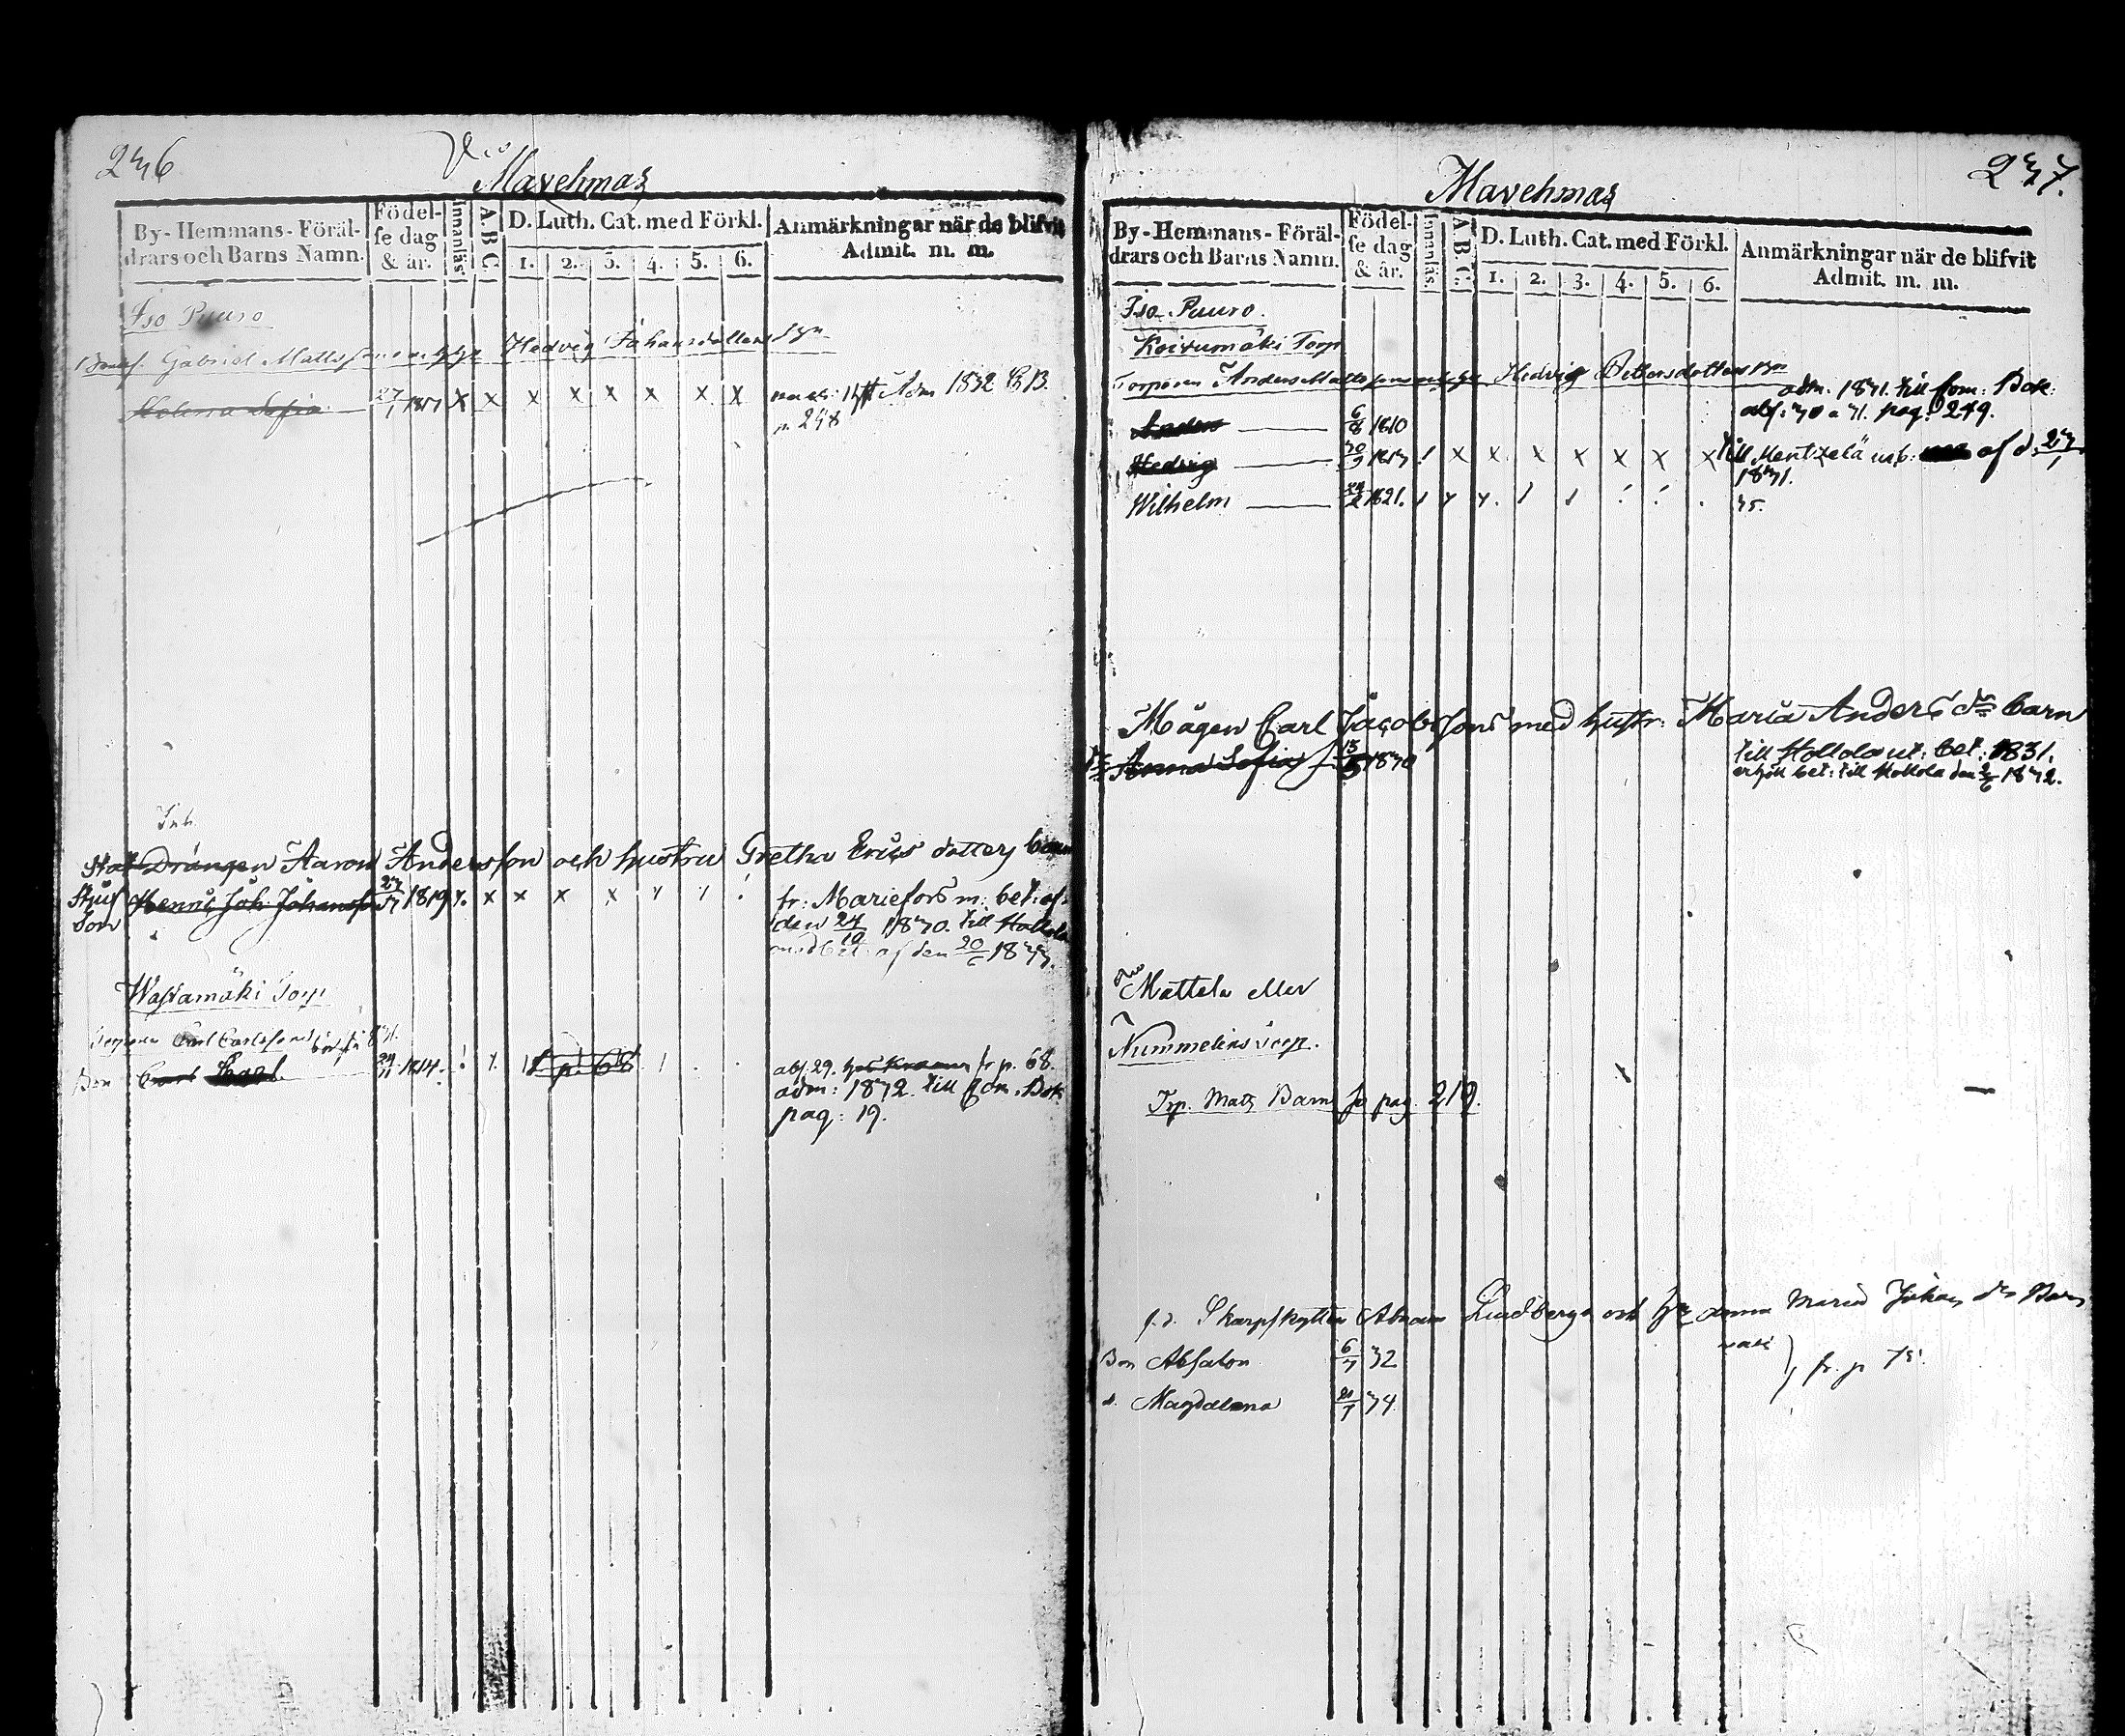 246
Mavehmas
By-Hemmans-Föräl-
drars och Barns Namn.
Födel-
se dag
& år.
Innanläs
A.B.C.
D. Luth. Cat. med Förkl.
1. 2. 3. 4. 5. 6.
Anmärkningar när de blifvit
Admit. m. m.
Iso Puuro
Gabriel Mattss Hedvig Johansdotters
Helena Sofia 27/1 x x x x x x x x Adm 1832
p. 248
Inh.
Drängen Aaron Andersson och hustru Gretha Erics dotters barn
Stjuf Henric Joh: Johansson 1819 x x x x
Son
fr: Mariefors m: bet: af
den 24/10 1830. till Hollola
med bet: af den 20/6 1833.
Wastamäki Torp
Carl Carlssons
Son Carl Carl 1814. p. 68
abs. 29. fr p. 68.
adm: 1832. till Com. Bok
pag: 19.
247.
Mavehmas
By-Hemmans-Föräl-
drars och Barns Namn.
Födel-
se dag
& år.
Innanläs
A.B.C.
D. Luth. Cat. med Förkl.
1. 2. 3. 4. 5. 6.
Anmärkningar när de blifvit
Admit. m. m.
Iso Puuro.
Koivumäki Torp
Torparen Anders Mattssons Hedvig Pettersdotters Bn
adm. 1831. till Com: Bok:
Anders 6/8 1810 abs: 30 a 31. pag: 249.
Hedvig x x x x x x x till Mentzelä af d.
1831.
Wilhelm 1821. 35.
Mågen Carl Jacobssons med hustr: Maria Anders dr barn
Anna Sofia 1830 till Hollola ut: bet: 1831.
erhöll bet: till Hollola den 2/6 1832.
Mattela eller
Nummelins Torp.
Trp. Mats Barn se pag. 219.
f.d. Skarpskytten Abram Lindbergs och Anna Maria Johans dr Barn
Son Absalon 6/7 32
fr. p 75.
d. Magdalena 34